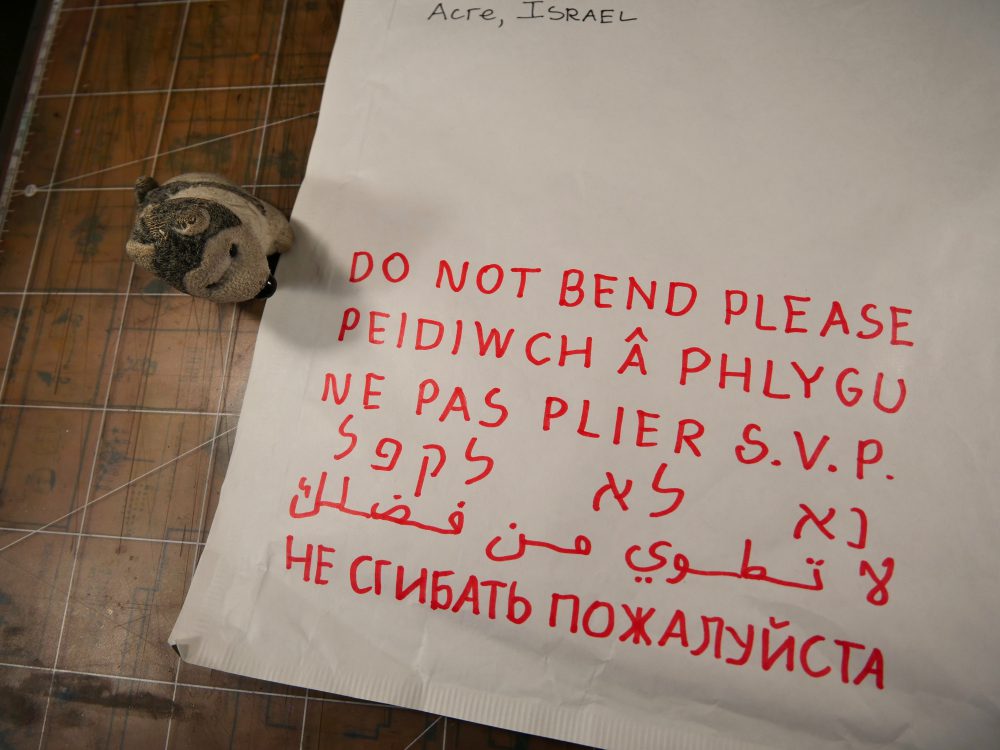 Acre, ISRAEL
DO NOT BEND PLEASE
PEIDIWCH Â PHLYGU
NE PAS PLIER S.V.P.
נא לא לקפל
لا تطوي من فضلك
НЕ СГИБАТЬ ПОЖАЛУЙСТА